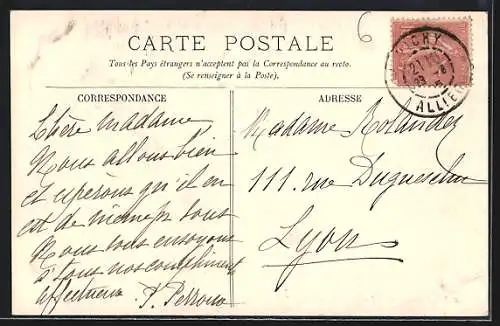 CARTE POSTALE
Tous les Pays étrangers n'acceptent pas la Correspondance au recto.
(Se renseigner à la Poste).
CORRESPONDANCE
Chère Madame
Nous allons bien
et espérons qu'il en
est de même pr vous
Nous vous envoyons
à tous nos compliments
affectueux
ADRESSE
Madame
111. rue Duguesclin
Lyon
VICHY
ALLIER
6